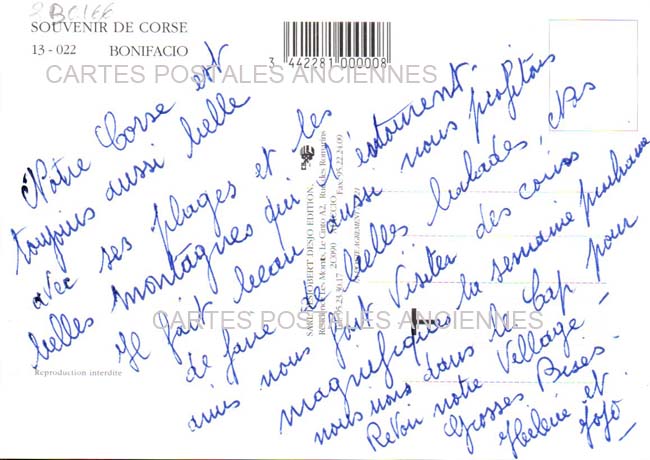 2BC166
SOUVENIR DE CORSE
13 - 022 BONIFACIO
3 442281 000008
CARTES POSTALES ANCIENNES
Notre Corse est
toujours aussi belle
avec ses plages et les
belles montagnes qui l'entourent.
Il fait beau aussi nous profitons
de faire de belles balades, Nos
amis nous font visiter des coins
magnifiques la semaine prochaine
nous irons dans le Cap pour
Revoir notre Village -
Grosses Bises -
Hélène et
Jojo
SARL JOBERT DESJO EDITION,
Fax 95.22.24.09
CARTES POSTALES ANCIENNES
Reproduction interdite